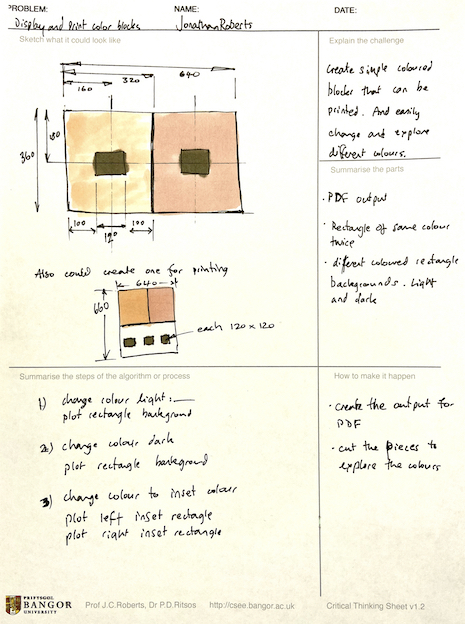 PROBLEM:
NAME:
DATE:
Display and Print color blocks
Jonathan Roberts
Sketch what it could look like
640
320
160
180
360
100
120
100
Also could create one for printing
640
660
each 120 x 120
Explain the challenge
create simple coloured
blocks that can be
printed. And easily
change and explore
different colours.
Summarise the parts
· PDF output
· Rectangle of same colour
twice
· different coloured rectangle
backgrounds. Light
and dark
Summarise the steps of the algorithm or process
1) change colour light:
plot rectangle background
2) change colour dark
plot rectangle background
3) change colour to inset colour
plot left inset rectagle
plot right inset rectangle
How to make it happen
· create the output for
PDF
· cut the pieces to
explore the colours
PRIFYSGOL
BANGOR
UNIVERSITY
Prof J.C.Roberts, Dr P.D.Ritsos
http://csee.bangor.ac.uk
Critical Thinking Sheet v1.2